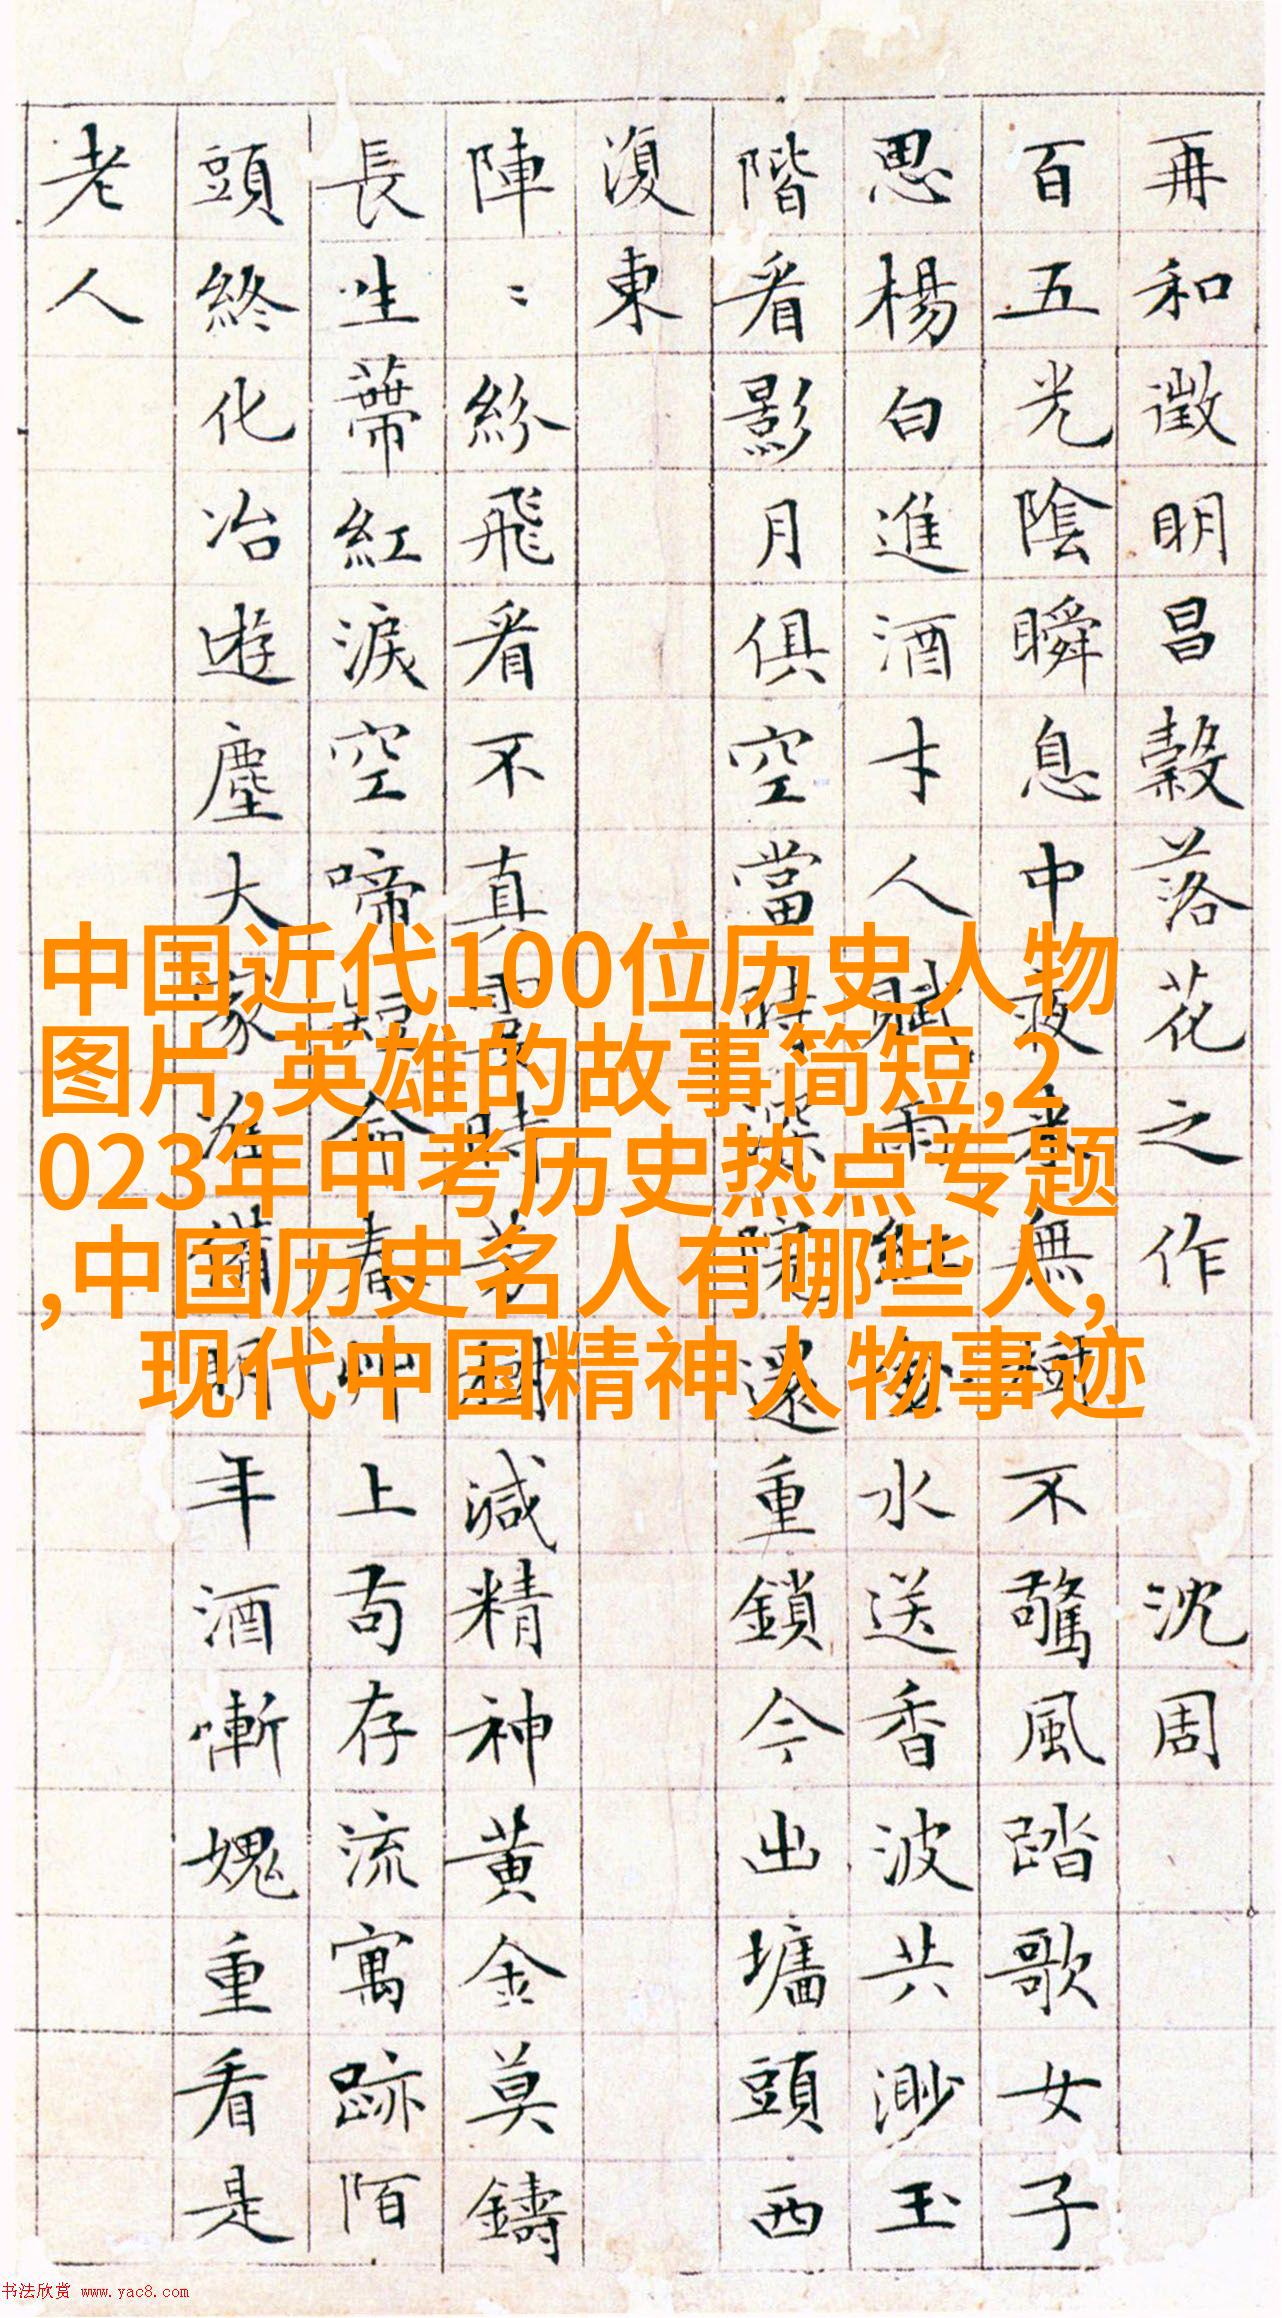 再和徵明昌穀落花之作 沈周
百五光陰瞬息中夜來無不驚風踏歌女子
思楊白進酒才人賦雨紅水送香波共渺玉
階看影月俱空當時深院還重鎖今出墻頭西
復東
陣〻紛飛看不真霎時芳樹減精神黃金莫鑄
長生蒂紅淚空啼短命春草上苟存流寓跡陌
頭終化冶遊塵大家准備明年酒慚愧重看是
老人
中国近代100位历史人物
图片,英雄的故事简短,2
023年中考历史热点专题
,中国历史名人有哪些人,
现代中国精神人物事迹
书法欣赏 www.yac8.com